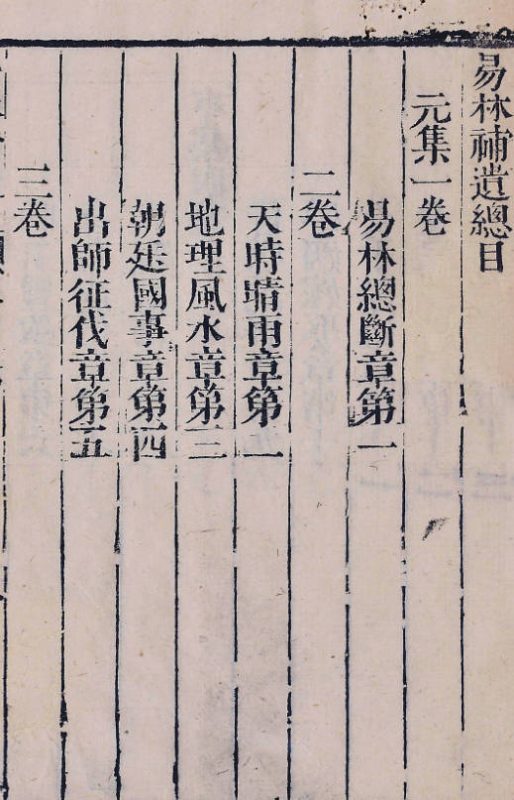 易林補遺總目
元集一卷
易林總斷章第一
二卷
天時晴雨章第二
地理風水章第三
朝廷國事章第四
出師征伐章第五
三卷